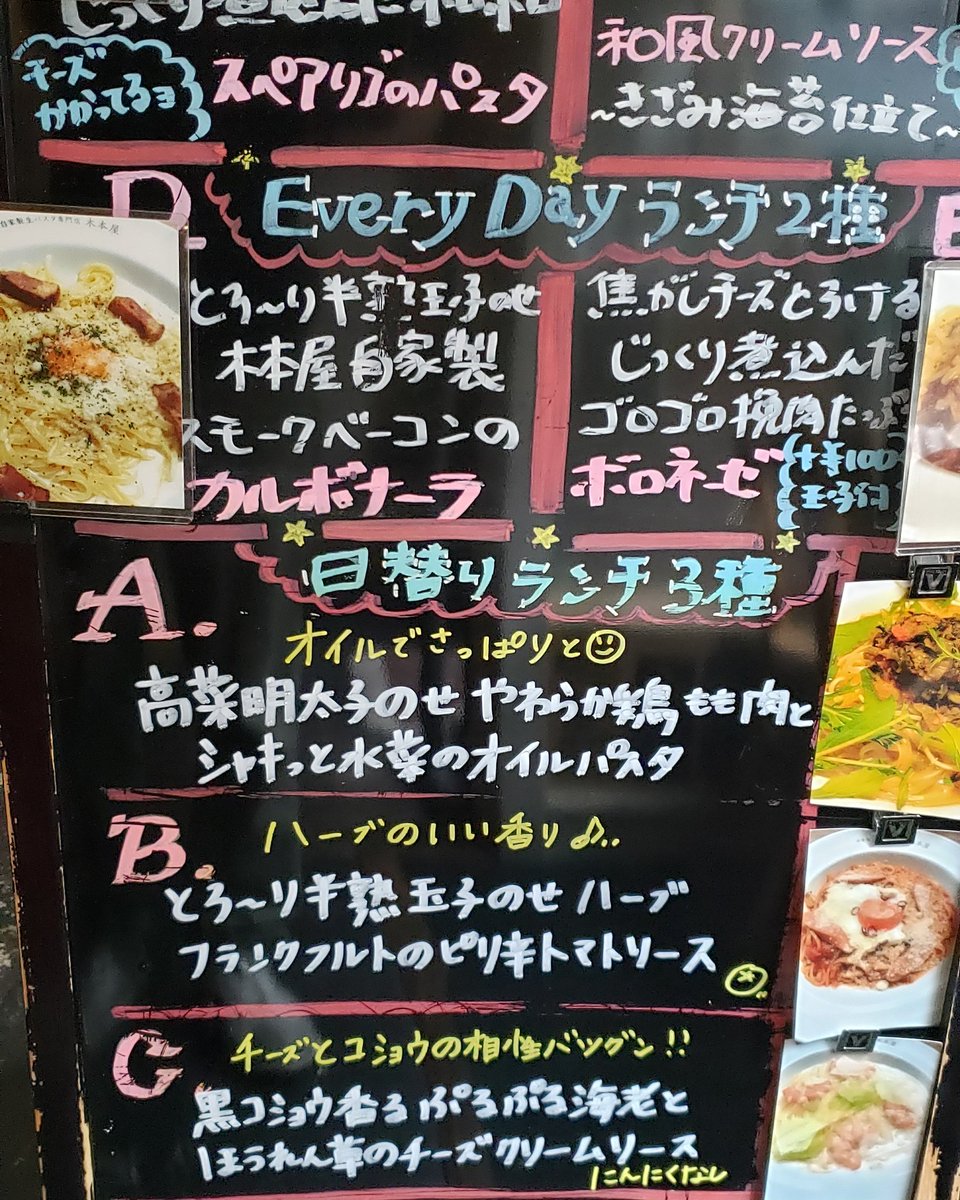 じっくり煮込んだ
チーズ
かかってるヨ
スペアリブのパスタ
和風クリームソース
~きざみ海苔仕立て~
Every Day ランチ2種
D
自家製生パスタ専門店 木本屋
とろ~り半熟玉子のせ
木本屋自家製
スモークベーコンの
カルボナーラ
焦がしチーズとろける
じっくり煮込んだ
ゴロゴロ挽肉たっぷ
ボロネーゼ
+¥100
玉子付
日替りランチ3種
A.
オイルでさっぱりと
高菜明太子のせ やわらか鶏もも肉と
シャキっと水菜のオイルパスタ
B.
ハーブのいい香り♪..
とろ~り半熟玉子のせ ハーブ
フランクフルトのピリ辛トマトソース
C.
チーズとコショウの相性バツグン!!
黒コショウ香る ぷるぷる海老と
ほうれん草のチーズクリームソース
にんにくなし